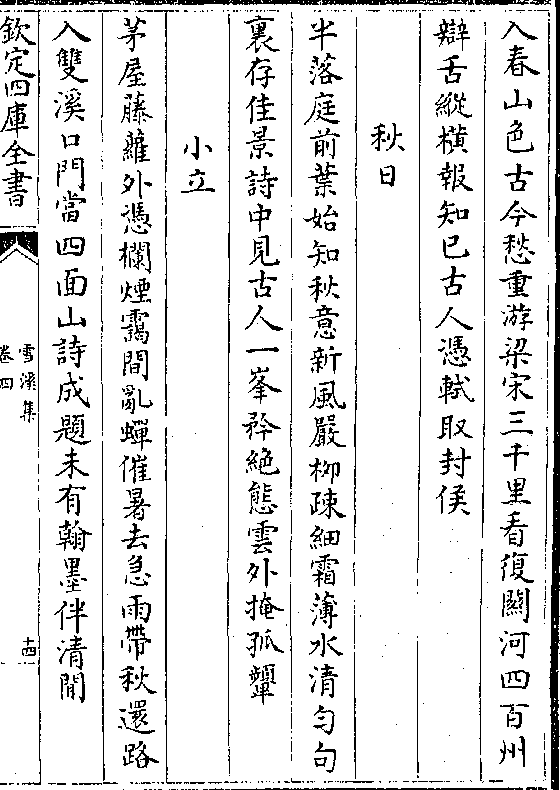 入春山色古今愁重游梁宋三千里看復關河四百州
辯舌縱橫報知已古人憑軾取封侯
秋日
半落庭前葉始知秋意新風嚴柳疎細霜薄水清勻句
裏存佳景詩中見古人一峯矜絶態雲外掩孤顰
小立
茅屋藤蘿外憑欄煙靄間亂蟬催暑去急雨帶秋還路
入雙溪口門當四面山詩成題未有翰墨伴清閒
欽定四庫全書
雪溪集
卷四
十四